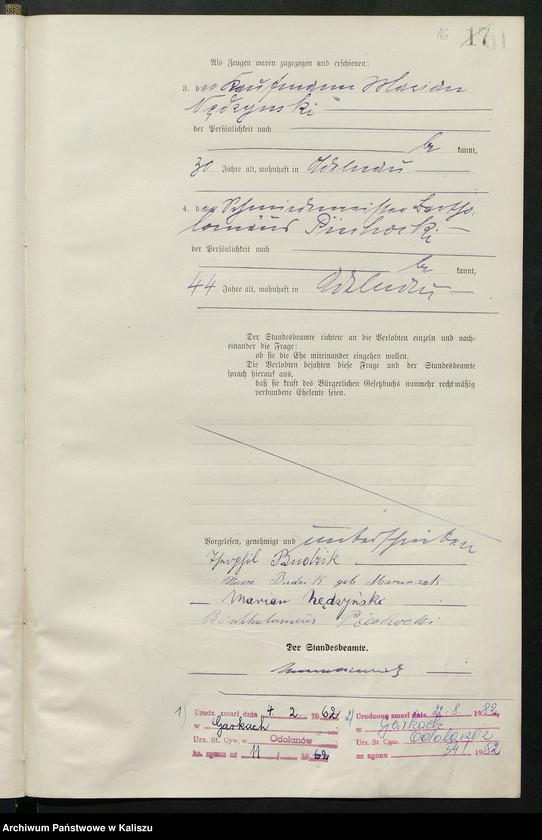 16 17
Als Zeugen waren zugezogen und erschienen:
3. der Kaufmann Marian
Nędzynski
der Persönlichkeit nach
be kannt,
30 Jahre alt, wohnhaft in Adelnau
4. der Schmiedemeister Bartho-
lomäus
der Persönlichkeit nach
be kannt,
44 Jahre alt, wohnhaft in Adelnau
Der Standesbeamte richtete an die Verlobten einzeln und nach-
einander die Frage:
ob sie die Ehe miteinander eingehen wollen.
Die Verlobten bejahten diese Frage und der Standesbeamte
sprach hierauf aus,
daß sie kraft des Bürgerlichen Gesetzbuchs nunmehr rechtmäßig
verbundene Eheleute seien.
Vorgelesen, genehmigt und unterschrieben
Theophil Budzik
Budzik geb Marunzak
Marian Nędzyński
Bartholomeus Piechocki
Der Standesbeamte.
1) Urodz. zmarł dnia 7. 2. 1962
w Garkach
Urz. St. Cyw. w Odolanów
ks. zgonu nr 11 / 62
2) Urodzona zmarł dnia 22. 8. 1982
w Garkach
Urz. St. Cyw. Odolanów
nr zgonu 54 / 1982
Archiwum Państwowe w Kaliszu